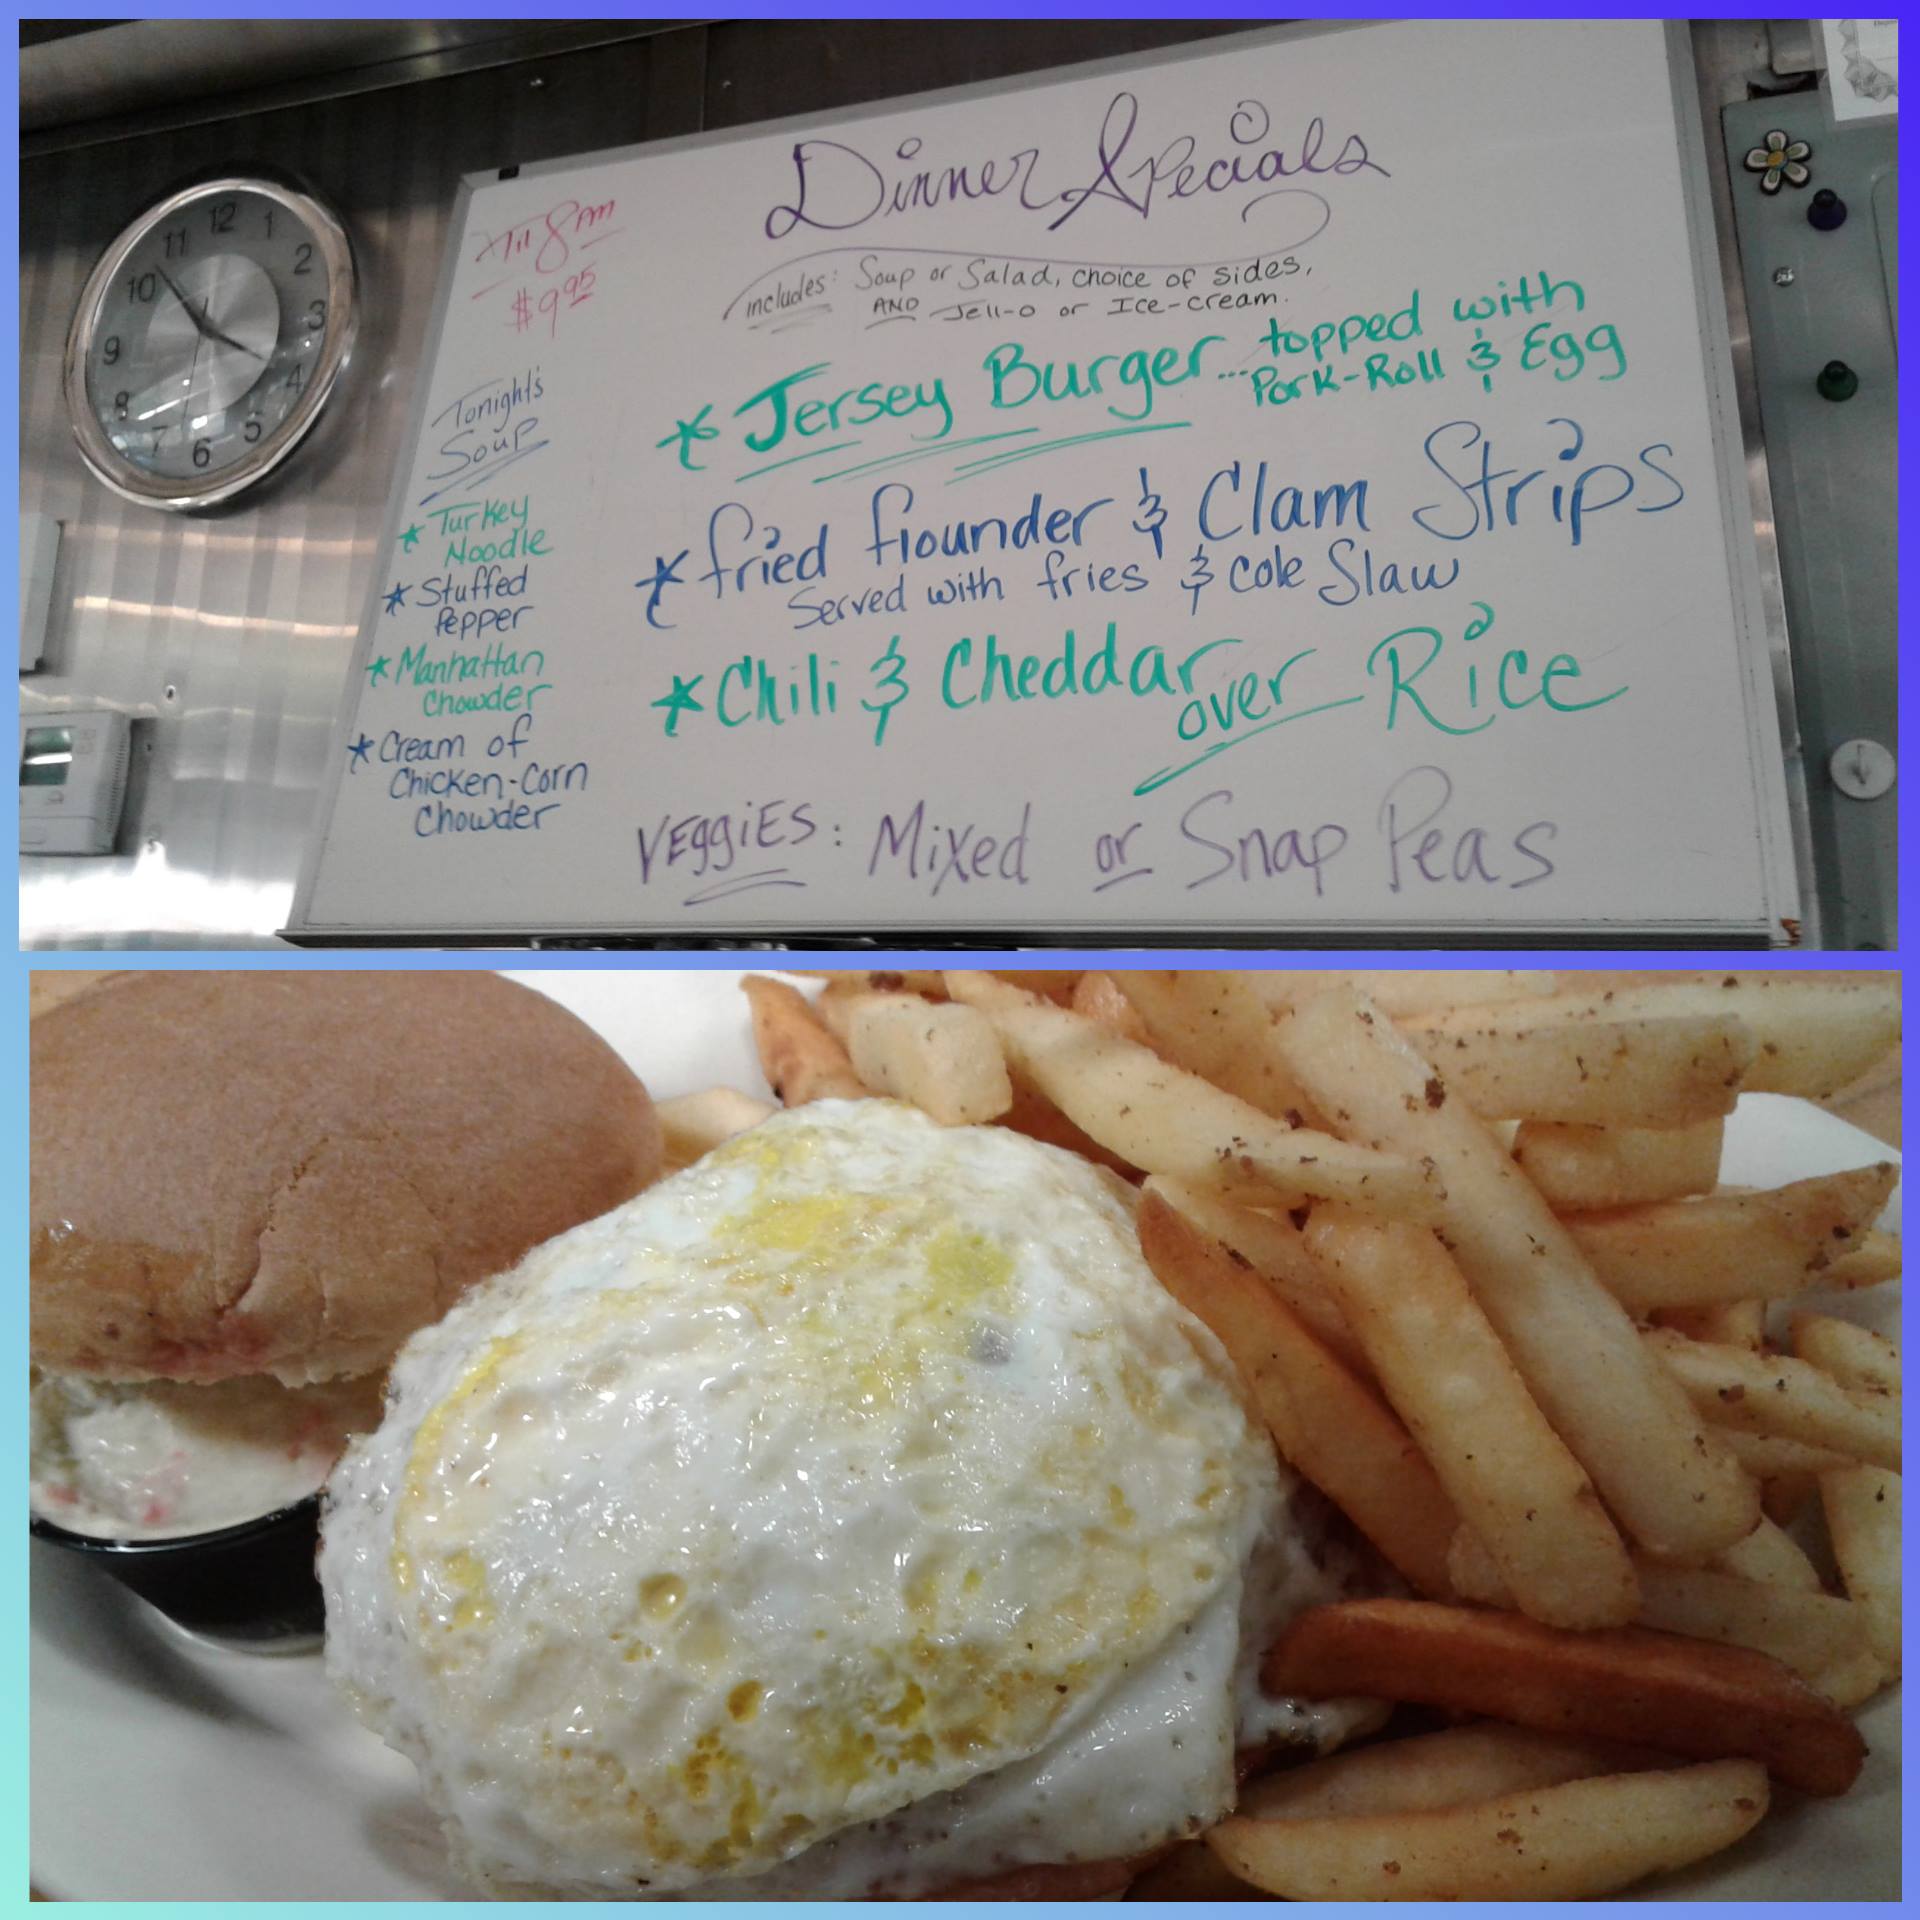 12
1
2
3
4
5
6
7
8
9
10
11
Till 8pm
$9.95
Tonight's
Soup
* Turkey
Noodle
* Stuffed
Pepper
* Manhattan
Chowder
* Cream of
Chicken-Corn
Chowder
Dinner Specials
includes: Soup or Salad, choice of sides,
AND Jell-o or Ice-cream.
* Jersey Burger... topped with
Pork-Roll & Egg
* fried flounder & Clam Strips
Served with fries & cole Slaw
* Chili & Cheddar over Rice
VEggiES: Mixed or Snap Peas